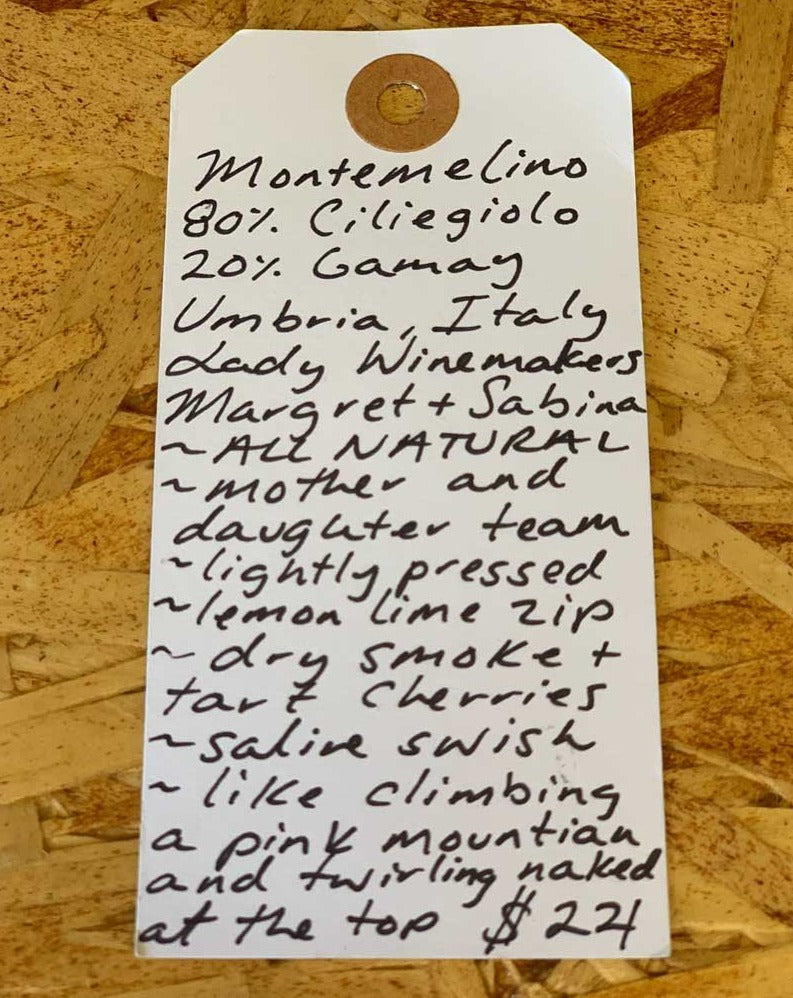 Montemelino
80% Ciliegiolo
20% Gamay
Umbria, Italy
Lady Winemakers
Margret + Sabina
~ALL NATURAL
~mother and
daughter team
~lightly pressed
~lemon lime zip
~dry smoke +
tart cherries
~saline swish
~like climbing
a pink mountian
and twirling naked
at the top $24